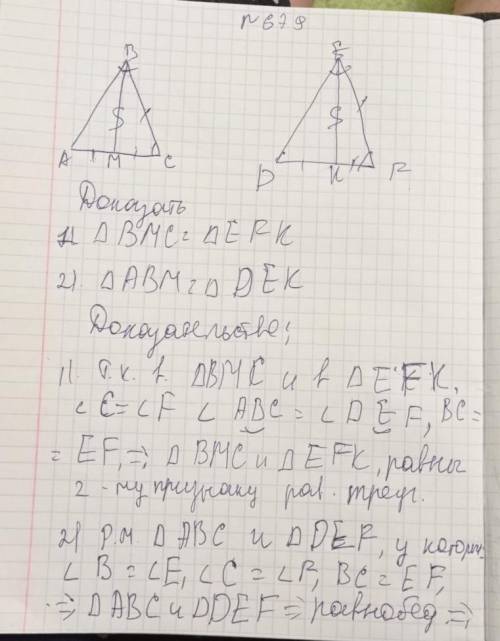 № 679
B
E
A M C
D K F
Доказать
1) △ BMC = △ EFK
2) △ ABM = △ DEK
Доказательство;
1) Т.к. в △BMC и в △EFK,
∠C = ∠F ∠ABC = ∠DEF, BC =
= EF, ⇒ △ BMC и △ EFK, равны
2-му признаку рав. треуг.
2) Р.м △ ABC и △DEF, у котор
∠ B = ∠E, ∠C = ∠F, BC = EF,
⇒ △ABC и △DEF ⇒ равнобед ⇒